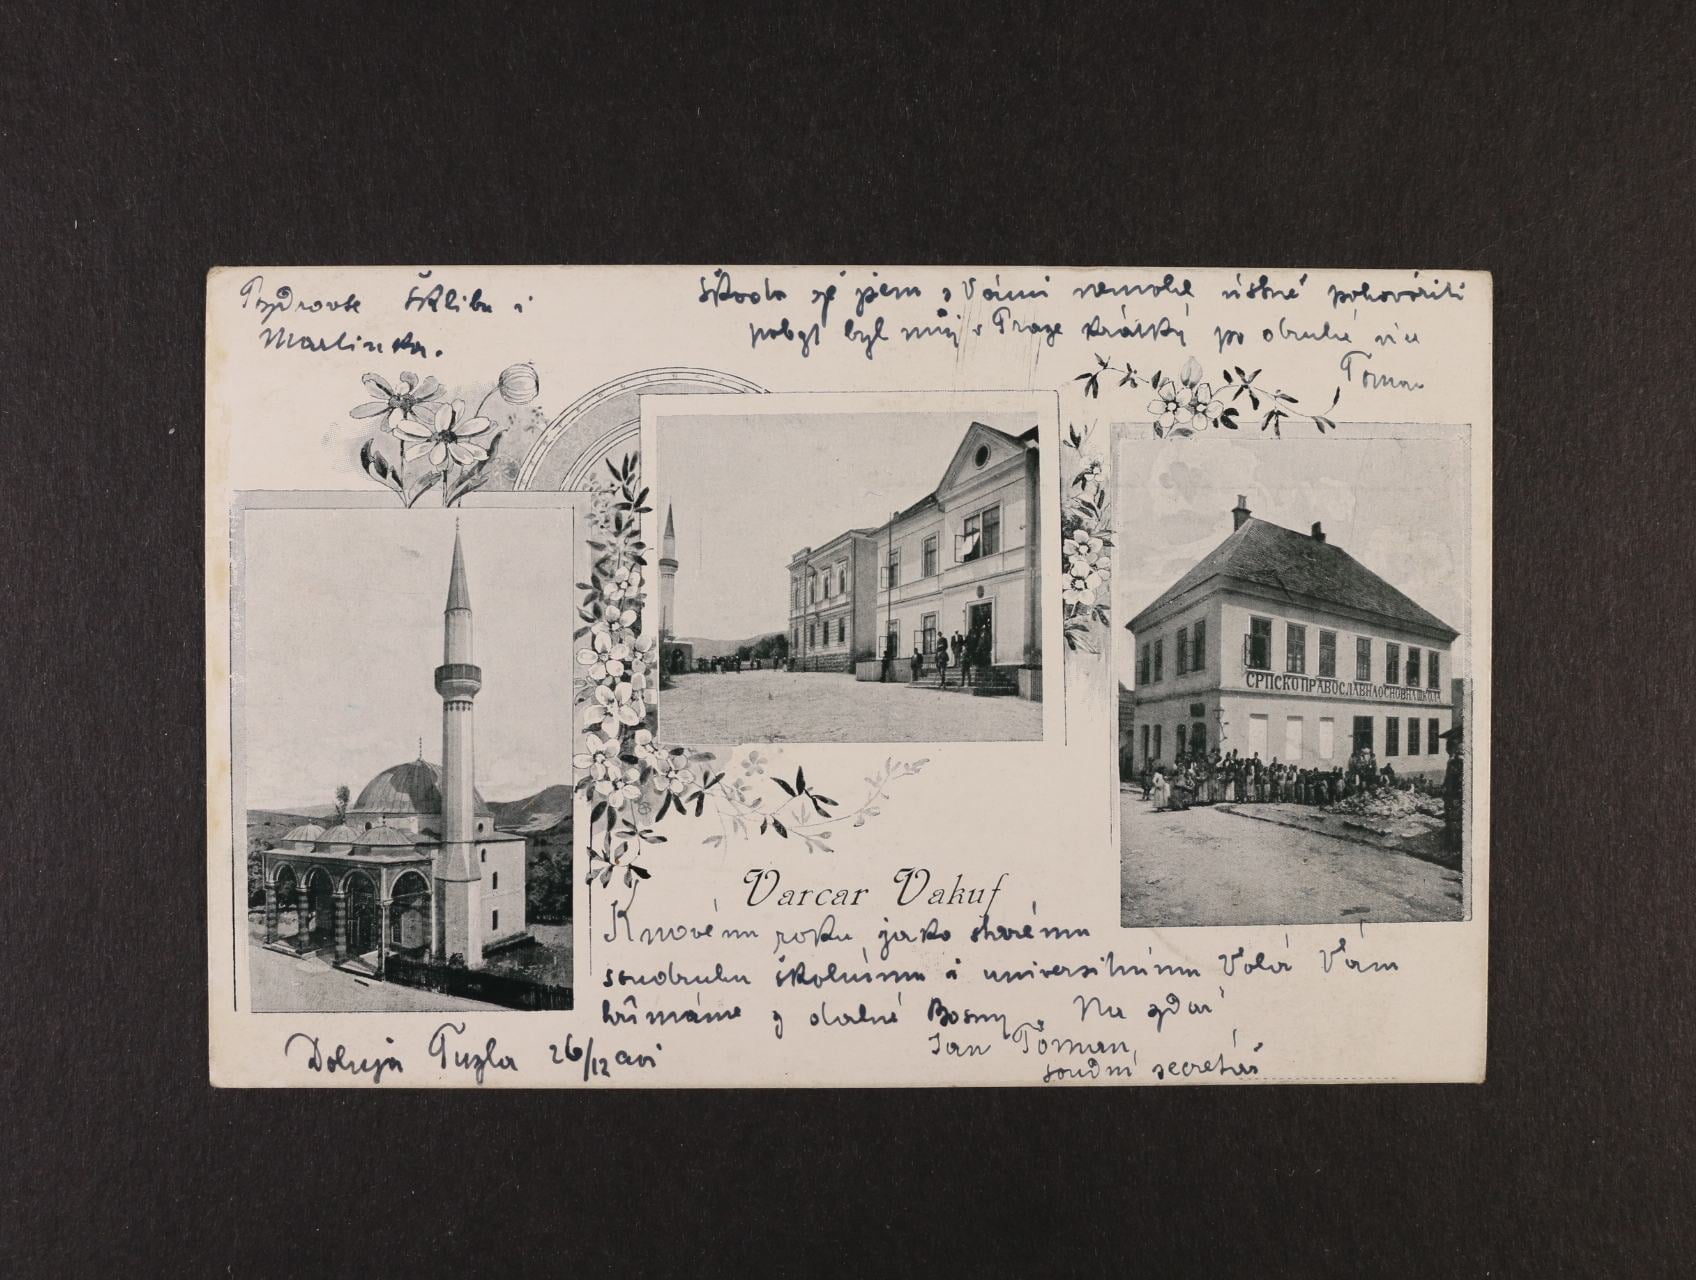 Pozdravte Šklíbu i
Martínka.
Škoda že jsem s Vámi nemohl ústně pohovořiti
pobyt byl můj v Praze krátký po druhé více
Toman
СРПСКО ПРАВОСЛАВНА ОСНОВНА ШКОЛА
Varcar Vakuf
K novému roku jako starému
soudruhu školnímu i universitnímu Volá Vám
hřímáme z dalné Bosny Na zdar
Jan Toman
soudní secretář
Dolnja Tuzla 26/12